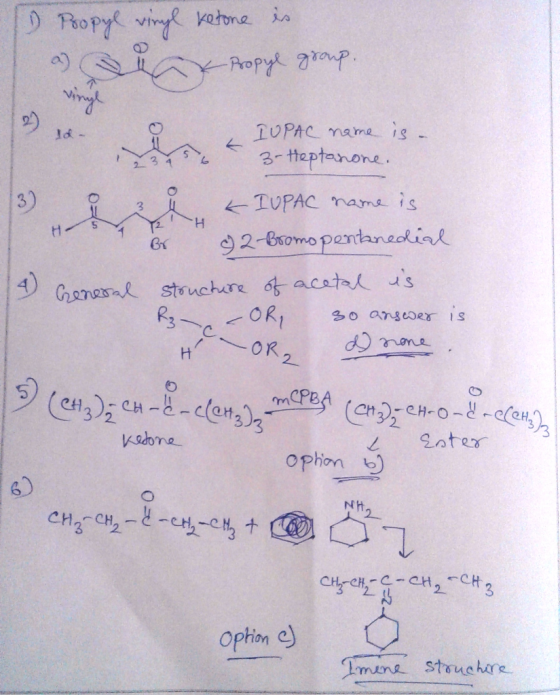 1) Propyl vinyl ketone is
a) O ← Propyl group.
vinyl
2) O
1 2 3 4 5 6 ← IUPAC name is -
3-Heptanone.
3) O O
H 5 4 3 2 1 H ← IUPAC name is
Br c) 2-Bromopentanedial
4) General structure of acetal is
R3 C OR1 so answer is
H OR2 d) none.
5) (CH3)2-CH-C-C(CH3)3 mCPBA (CH3)2-CH-O-C-C(CH3)3
O O
Ketone Ester
Option b)
6)
O NH2
CH3-CH2-C-CH2-CH3 +
CH3-CH2-C-CH2-CH3
N
Option c)
Imene structure